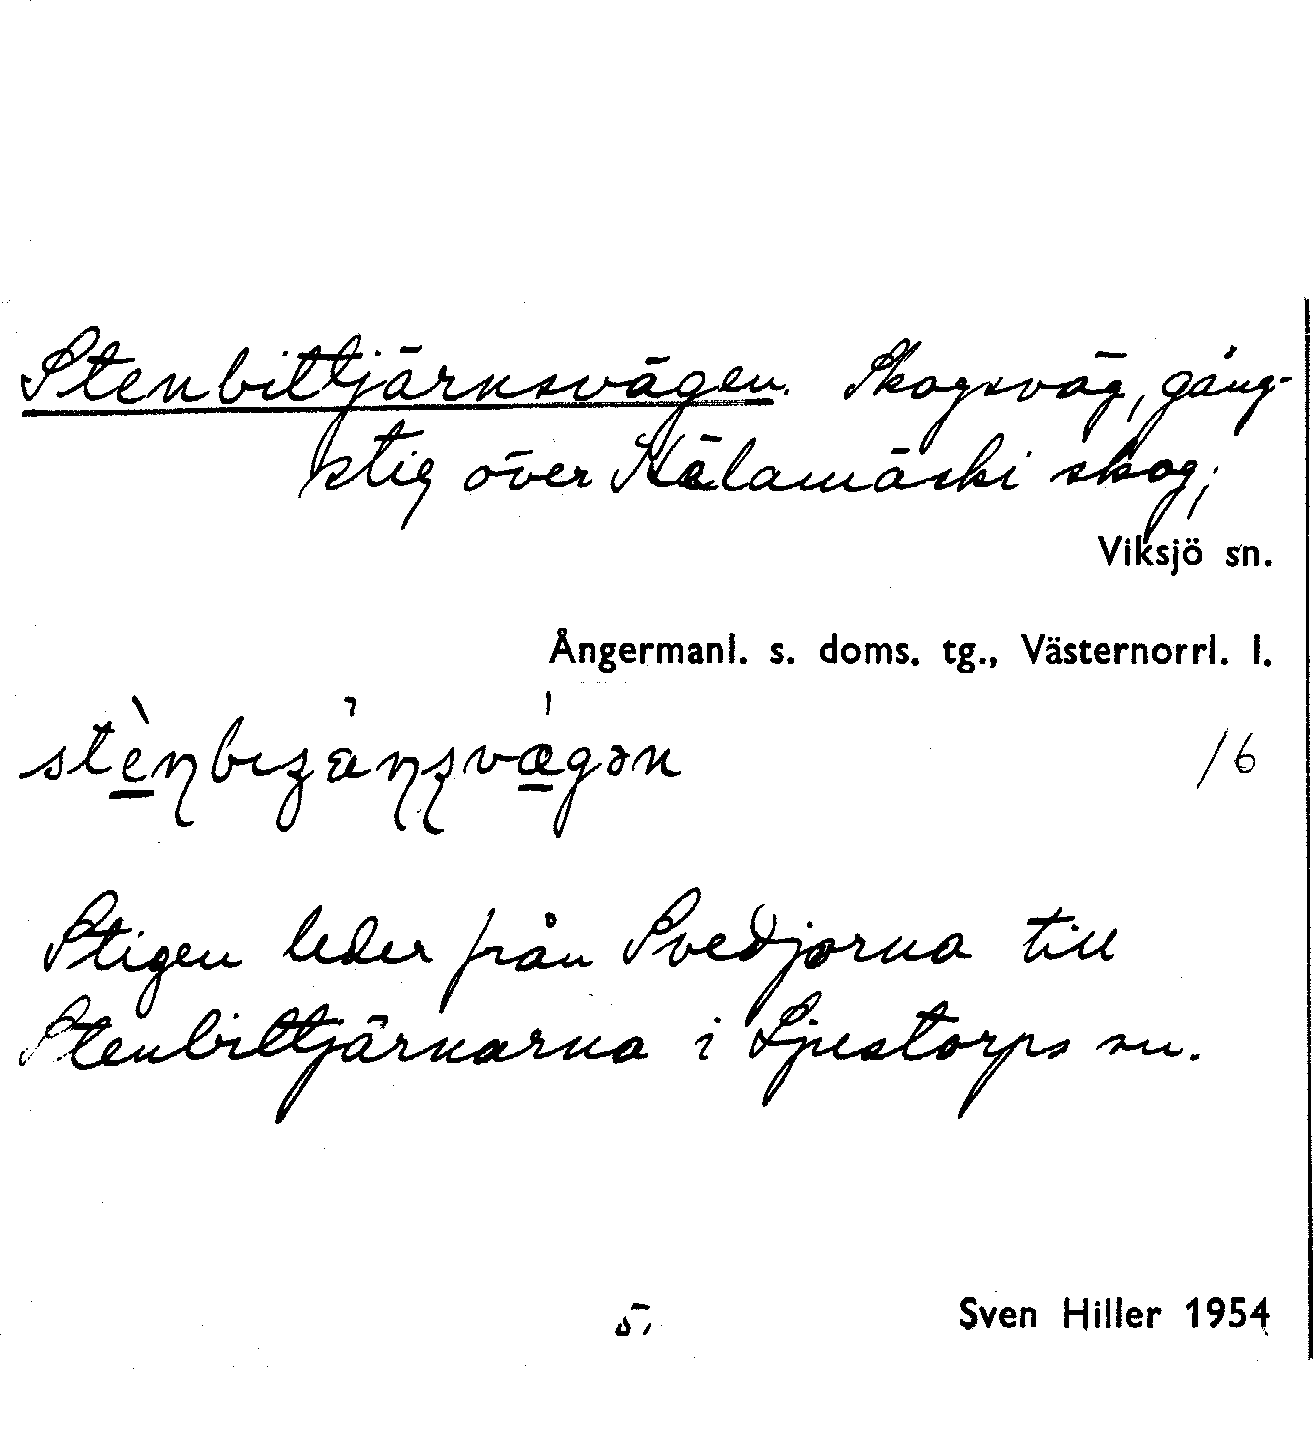 Stenbittjärnsvägen. Skogsväg, gång-
stig över Kälamäski skog,
Viksjö sn.
Ångermanl. s. doms. tg., Västernorrl. l.
/6
Stigen leder från Svedjorna till
Stenbittjärnarna i Ljustorps sn.
Sven Hiller 1954